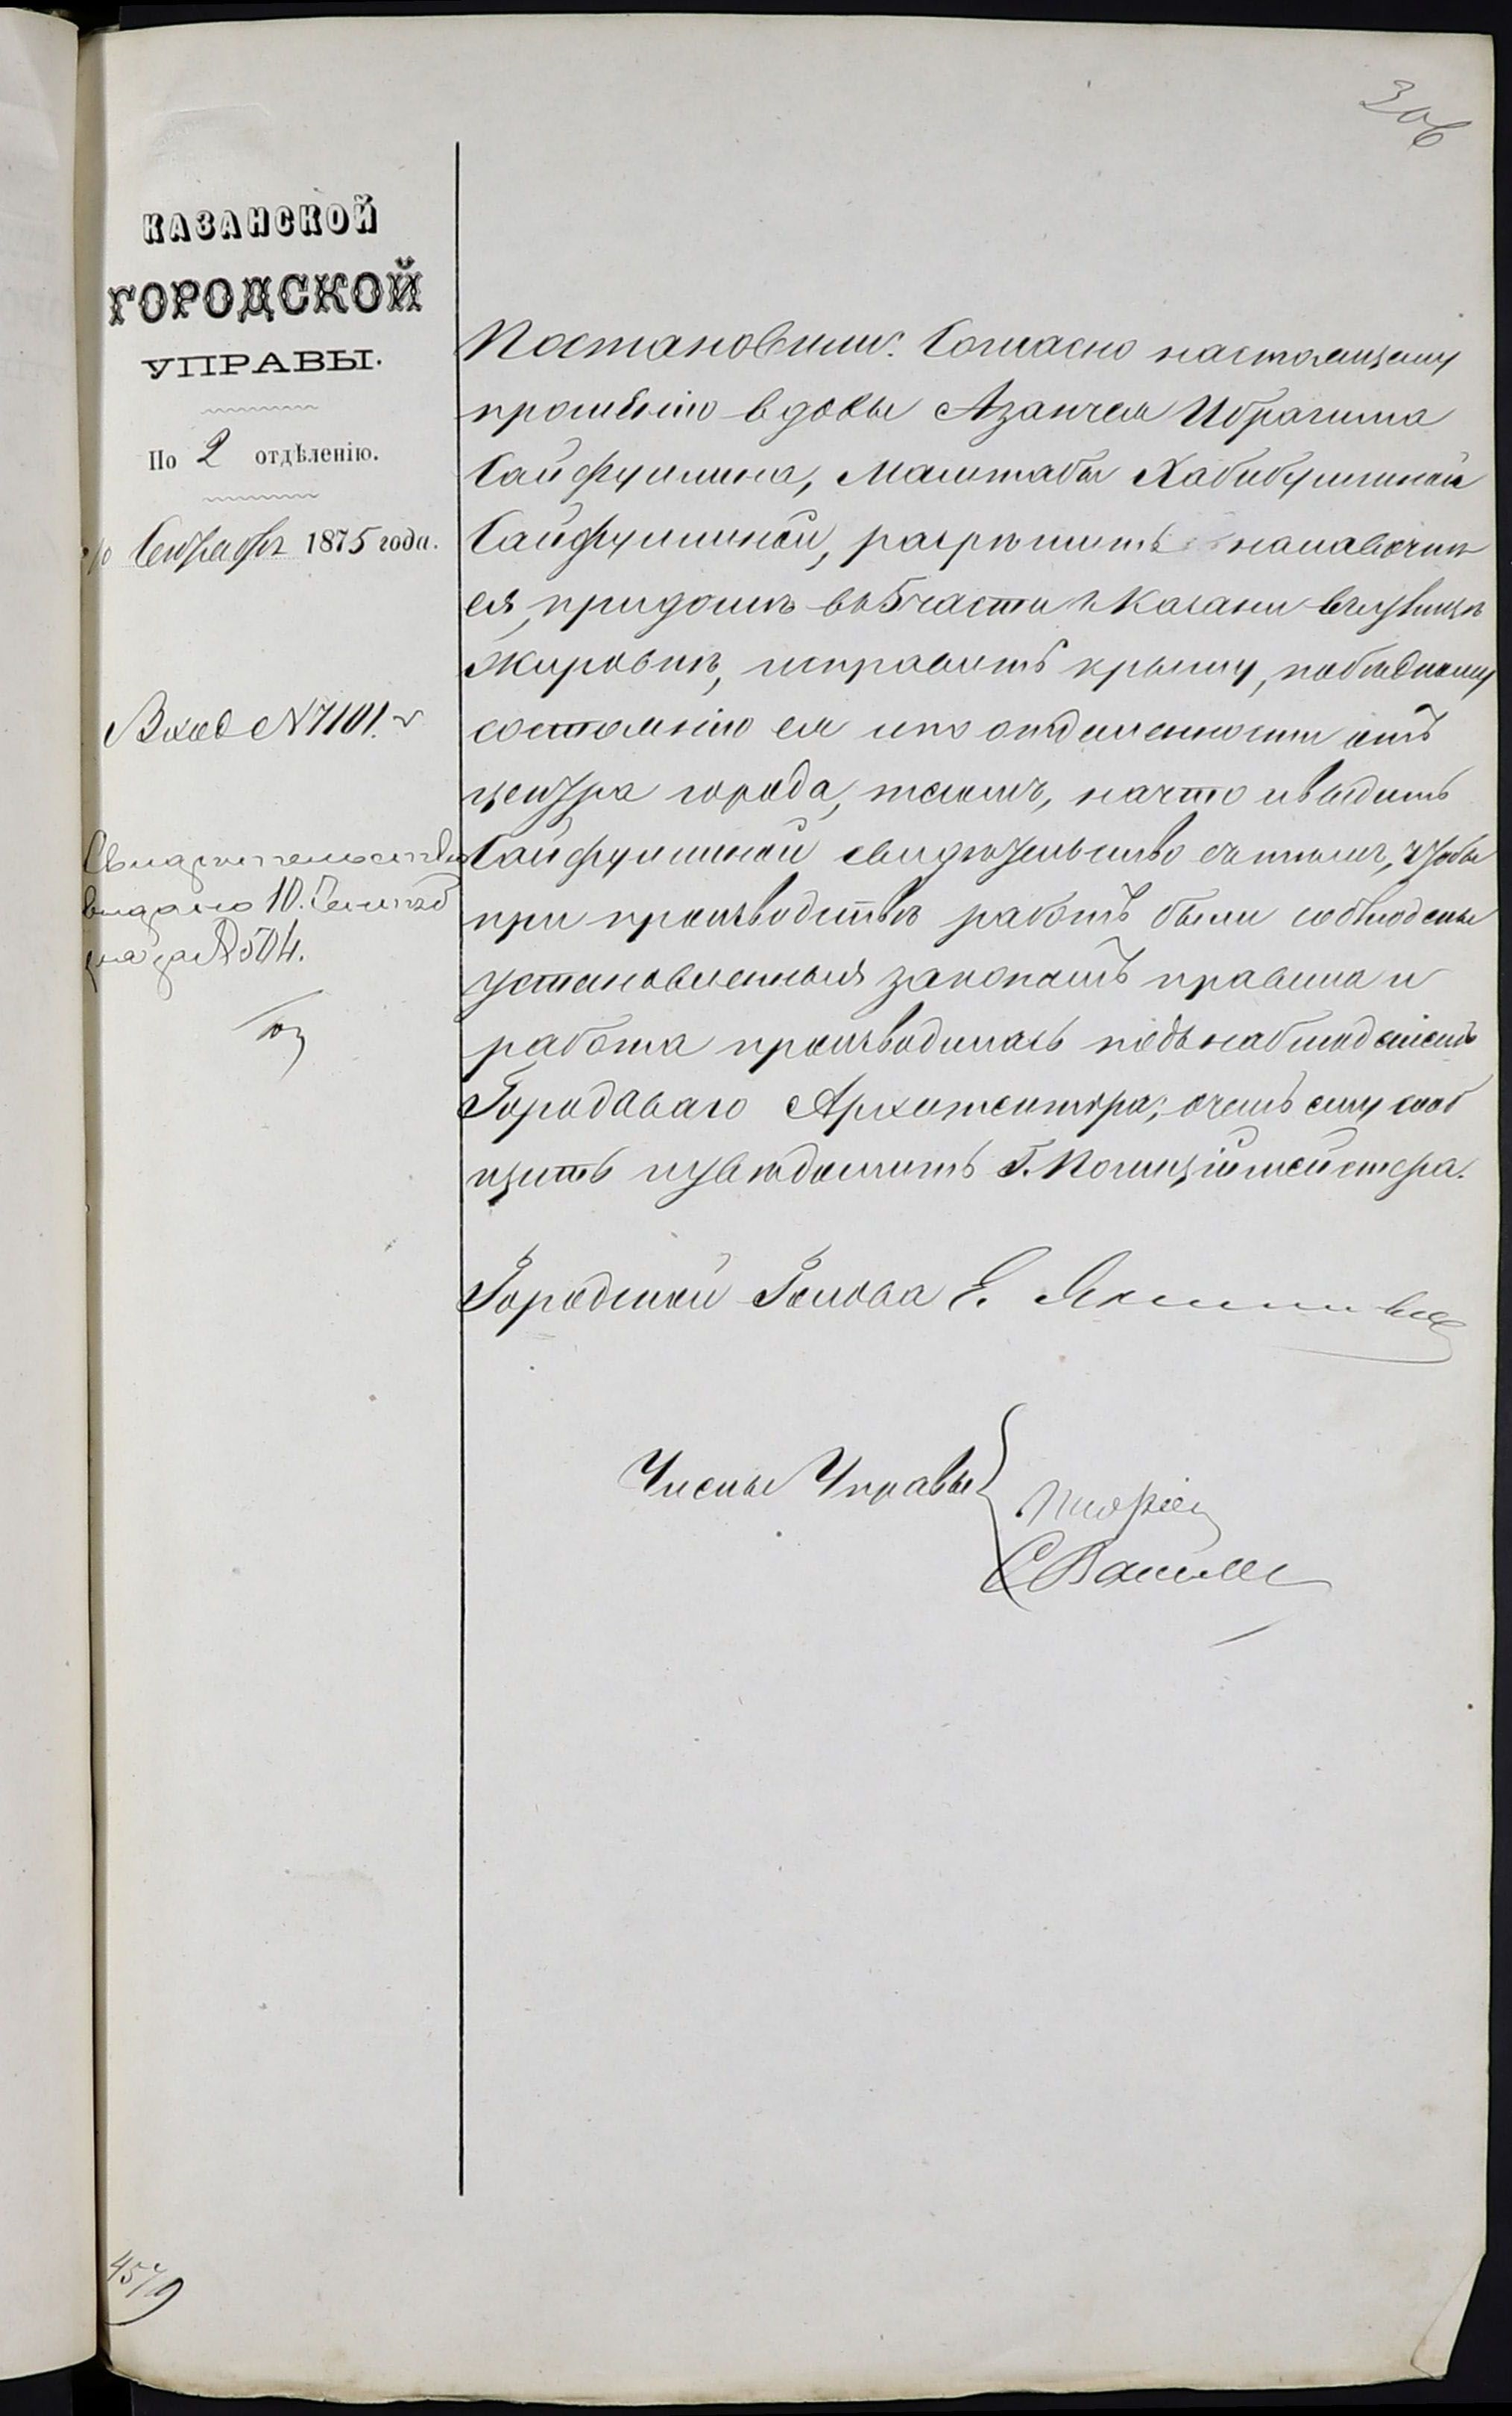 306
КАЗАНСКОЙ
ГОРОДСКОЙ
УПРАВЫ.
По 2 отдѣленію.
10 Сентября 1875 года.
Вход №7101.
Свидѣтельство
выдано 10. Сентяб
ря за №504.
Постановили: Согласно настоящему
прошенію вдовы Азанчея Ибрагима
Сайфуллина, Махитабы Хабибуллиной
Сайфуллиной, разрѣшить на лавочкѣ
ея, при домѣ въ 5 части г. Казани въ улицѣ
Жировкѣ, исправить крышу, по бѣдному
состоянію ея и по отдаленности отъ
центра города, тесомъ, на что и выдать
Сайфуллиной свидѣтельство съ тѣмъ, чтобы
при производствѣ работъ были соблюдены
установленныя закономъ правила и
работа производилась подъ наблюденіемъ
Городоваго Архитектора; о чемъ ему сооб
щить и увѣдомить Г. Полиціймейстера.
Городской Голова Е.
Члены Управы
4579